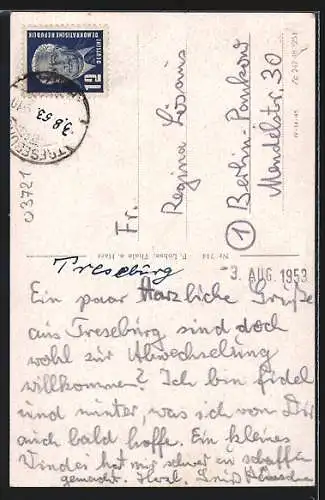 DEUTSCHE
DEMOKRATISCHE REPUBLIK
12
TRESEBURG
3.8.53.
03721
Fr.
Regina
① Berlin-Pankow
Mendelstr. 30
Treseburg
Nr. 714 F. Lohse, Thale a. Harz
-3. AUG. 1953
Ein paar Herzliche Grüße
aus Treseburg sind doch
wohl zur Abwechselung
willkommen? Ich bin fidel
und munter, was ich von Dir
auch bald hoffe. Ein kleines
hat mir schwer zu schaffen
gemacht. Herzl. Gruß